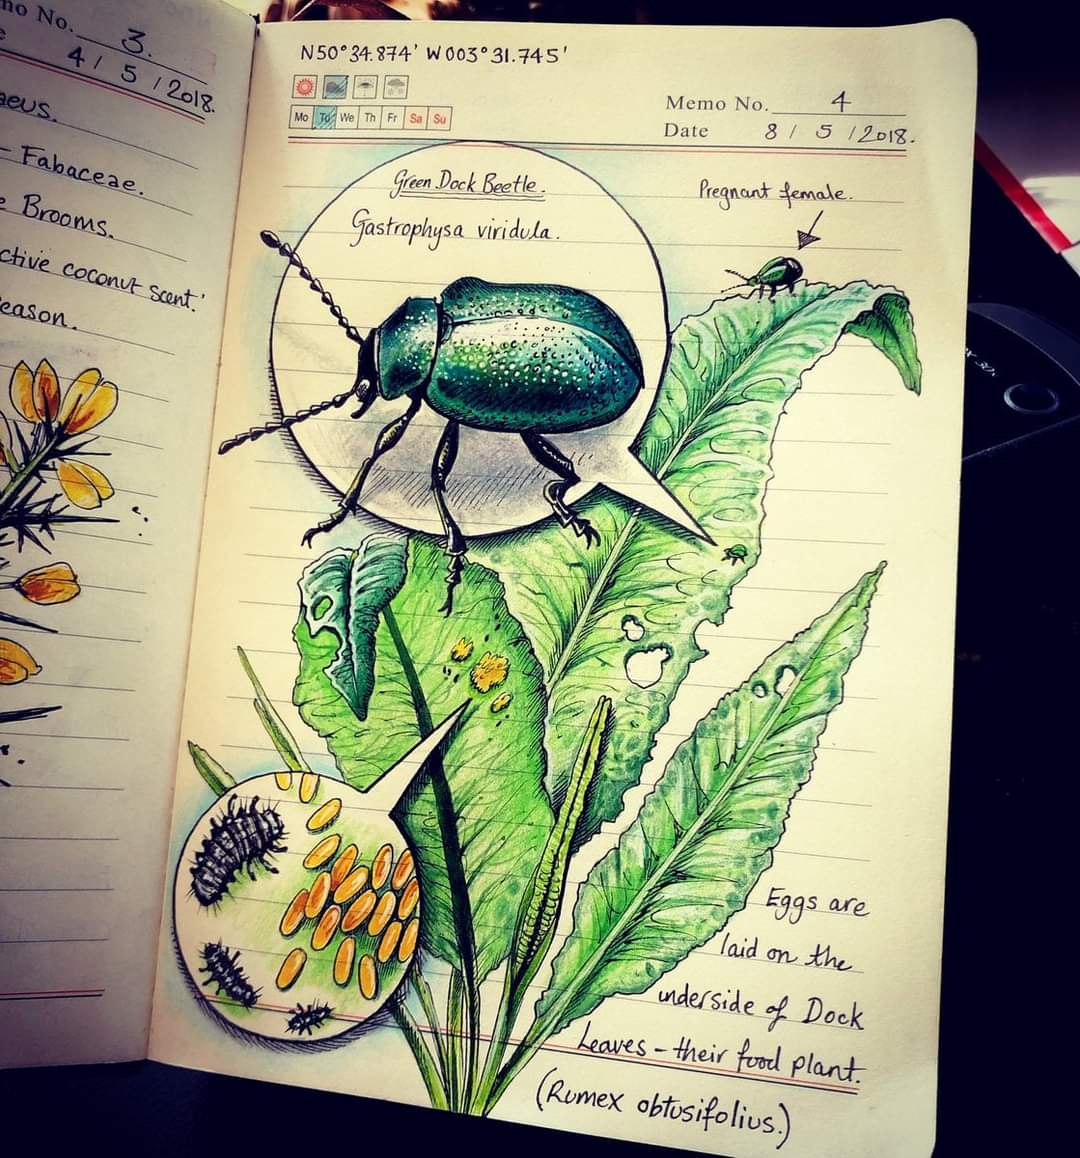 No.
3.
4 / 5 / 2018.
- Fabaceae.
Brooms.
coconut scent.'
N50°34.874' W003°31.745'
Mo Tu We Th Fr Sa Su
Memo No. 4
Date 8 / 5 / 2018.
Green Dock Beetle.
Gastrophysa viridula.
Pregnant female.
Eggs are
laid on the
underside of Dock
Leaves - their food plant.
(Rumex obtusifolius.)